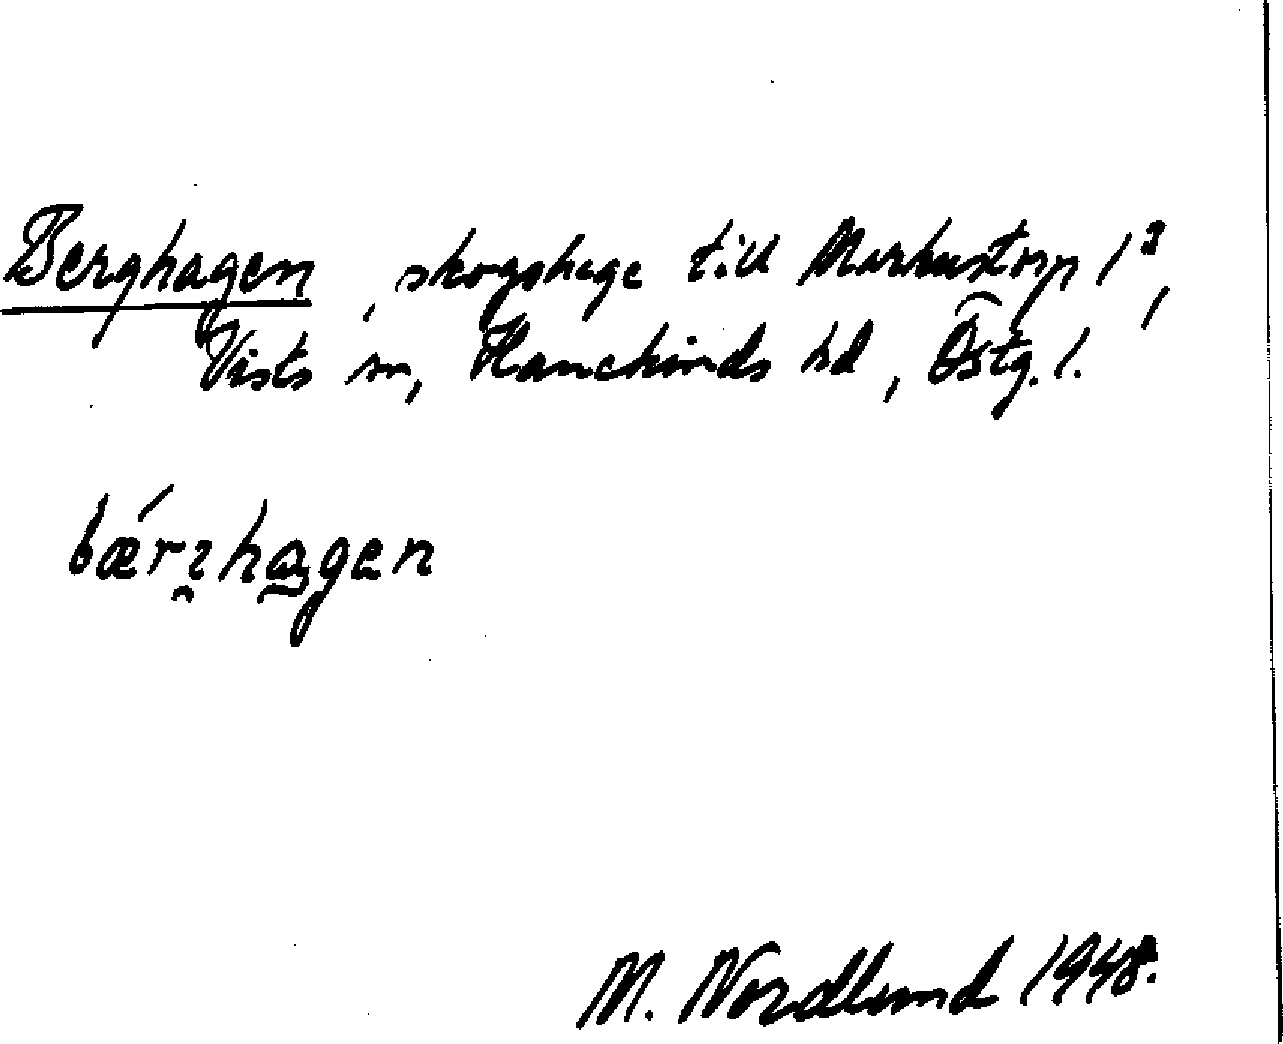 Berghagen, skogshage till Markustorp 1³,
Vists sn, Hanekinds hd, Östg. l.
bǽrɿ̯hagen
M. Nordlund 1948.